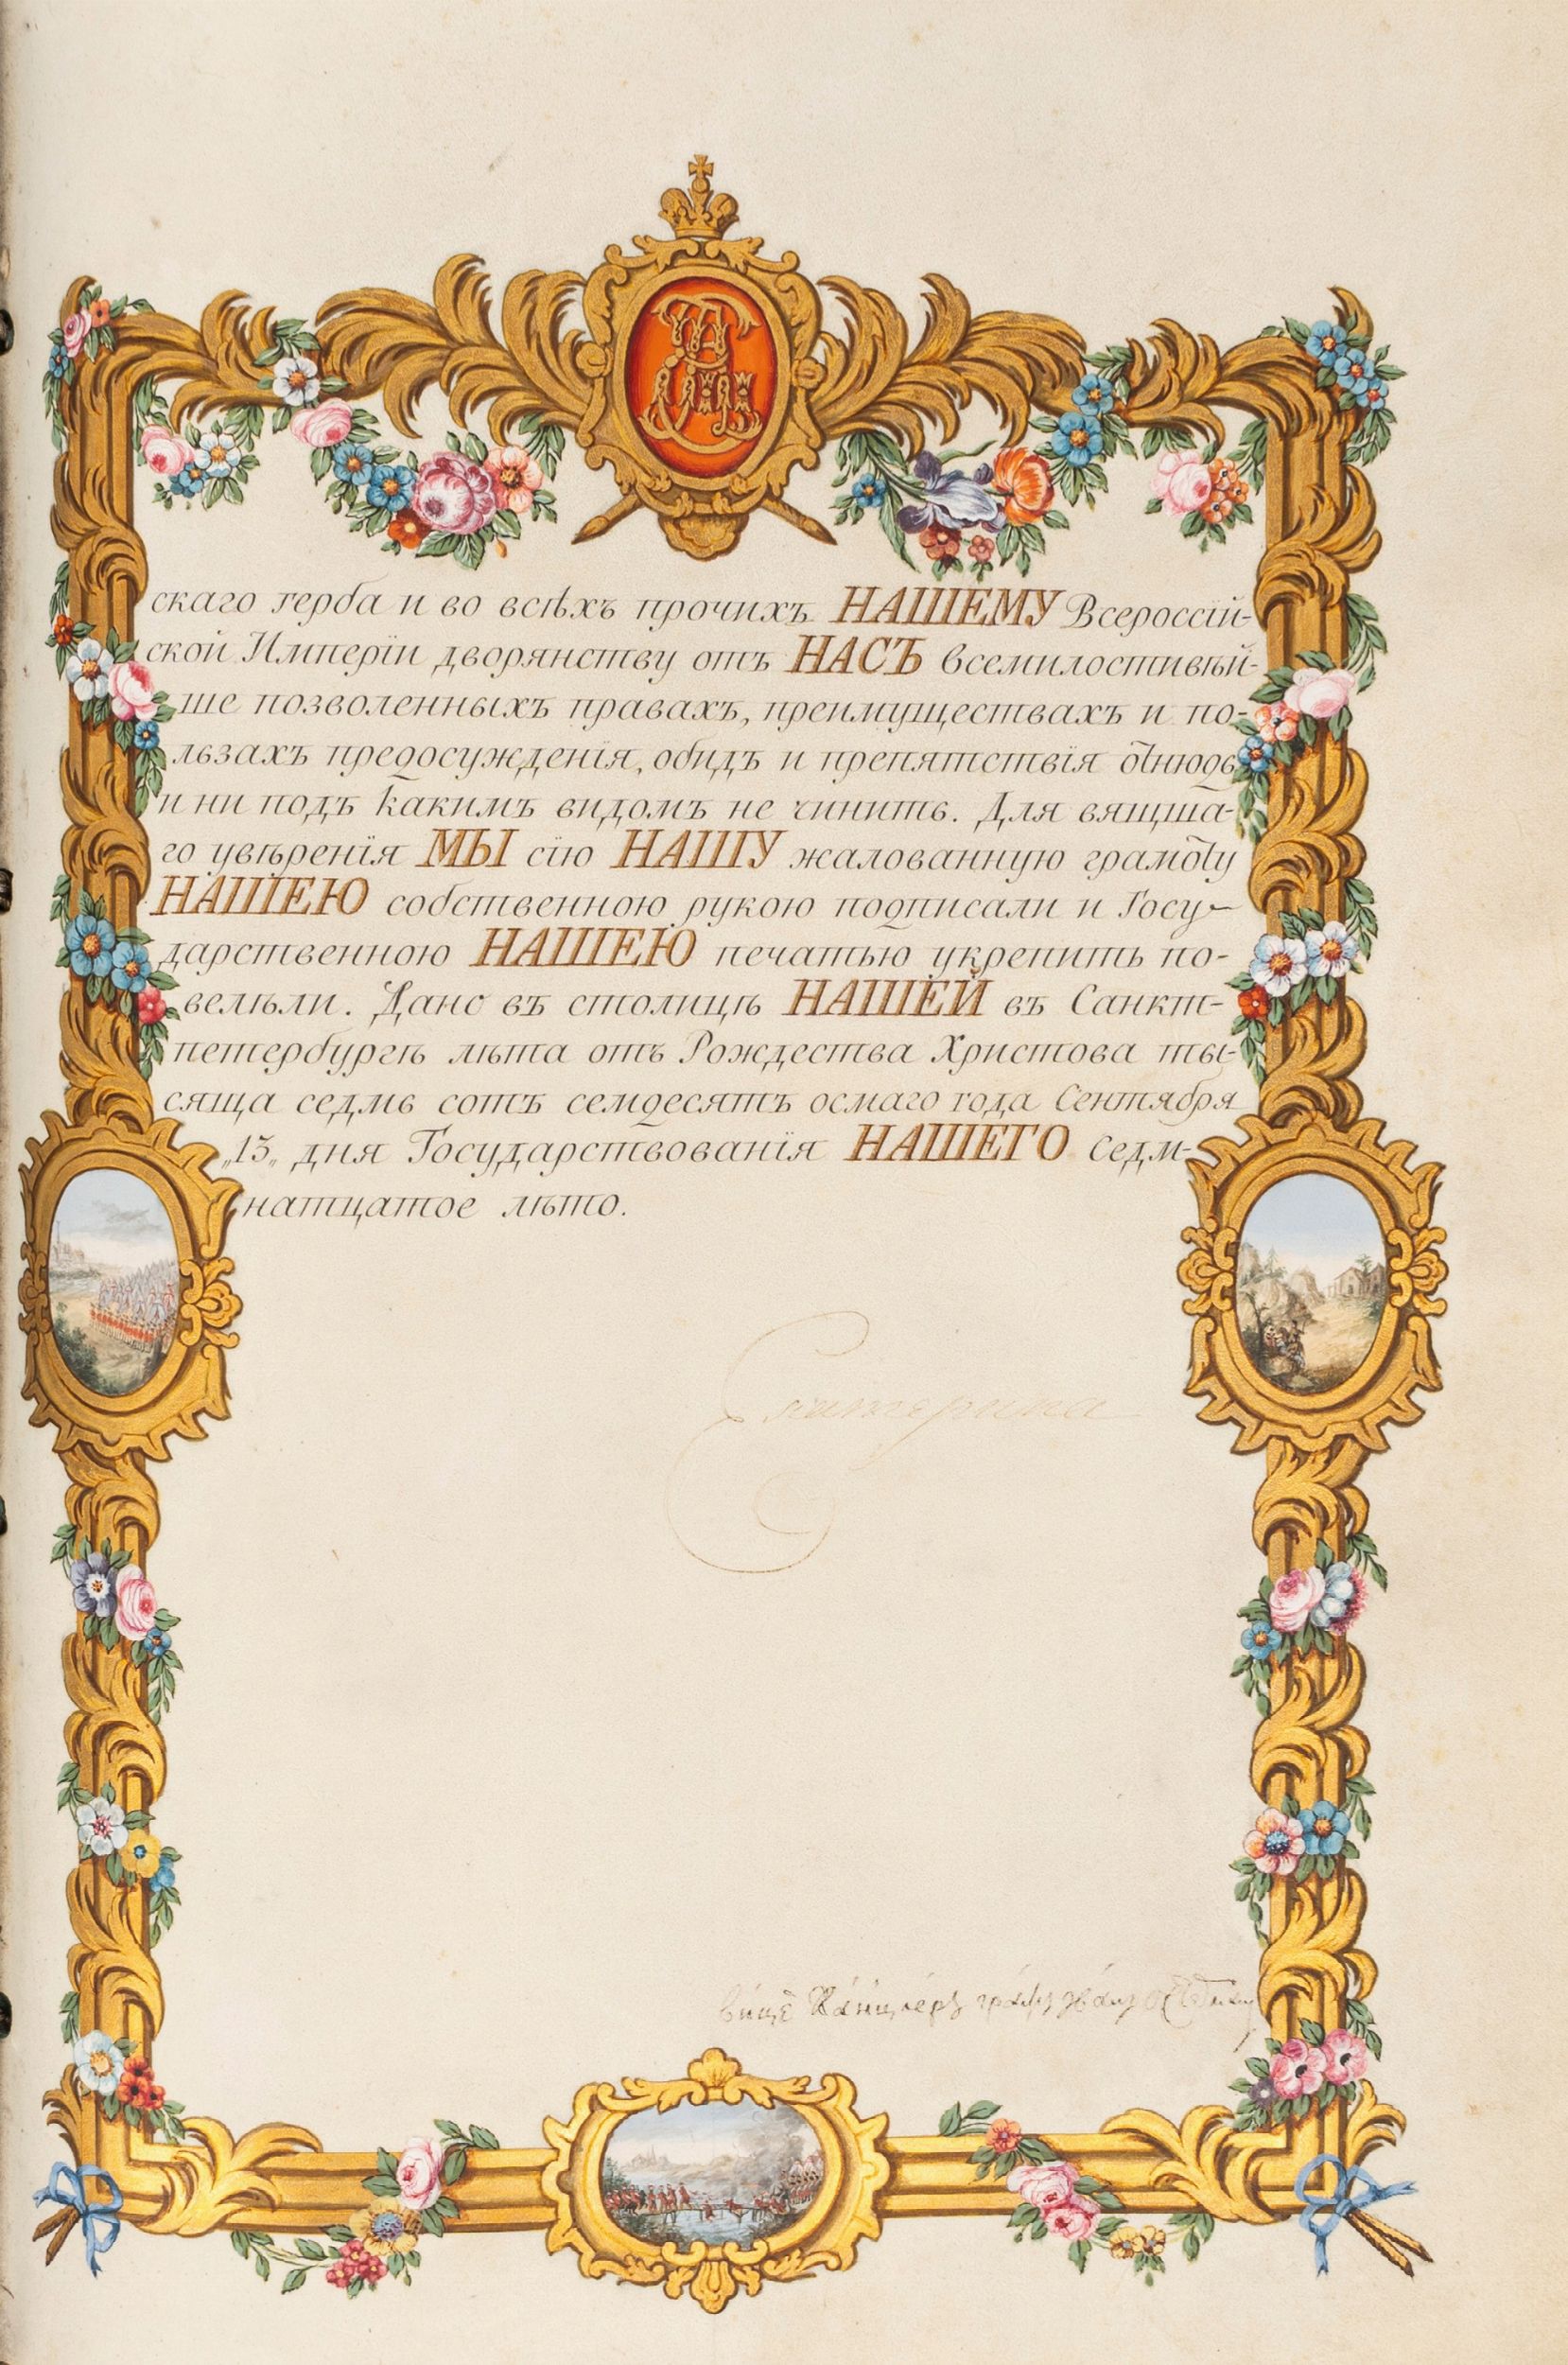 скаго герба и во всѣхъ прочихъ НАШЕМУ Всероссїй-
ской Имперїи дворянству отъ НАСЪ всемилостивѣй-
ше позволенныхъ правахъ, преимуществахъ и по-
льзахъ предосужденїя, обидъ и препятствїя отнюдь
и ни подъ какимъ видомъ не чинить. Для вящша-
го увѣренїя МЫ сїю НАШУ жалованную грамоту
НАШЕЮ собственною рукою подписали и Госу-
дарственною НАШЕЮ печатью укрепить по-
велѣли. Дано въ столицѣ НАШЕЙ въ Санкт-
петербургѣ лѣта отъ Рождества Христова ты-
сяща седмь сотъ семдесятъ осмаго года Сентября
„13„ дня Государствованїя НАШЕГО седм-
натцатое лѣто.
Екатерина
вице канцлеръ графъ Иванъ